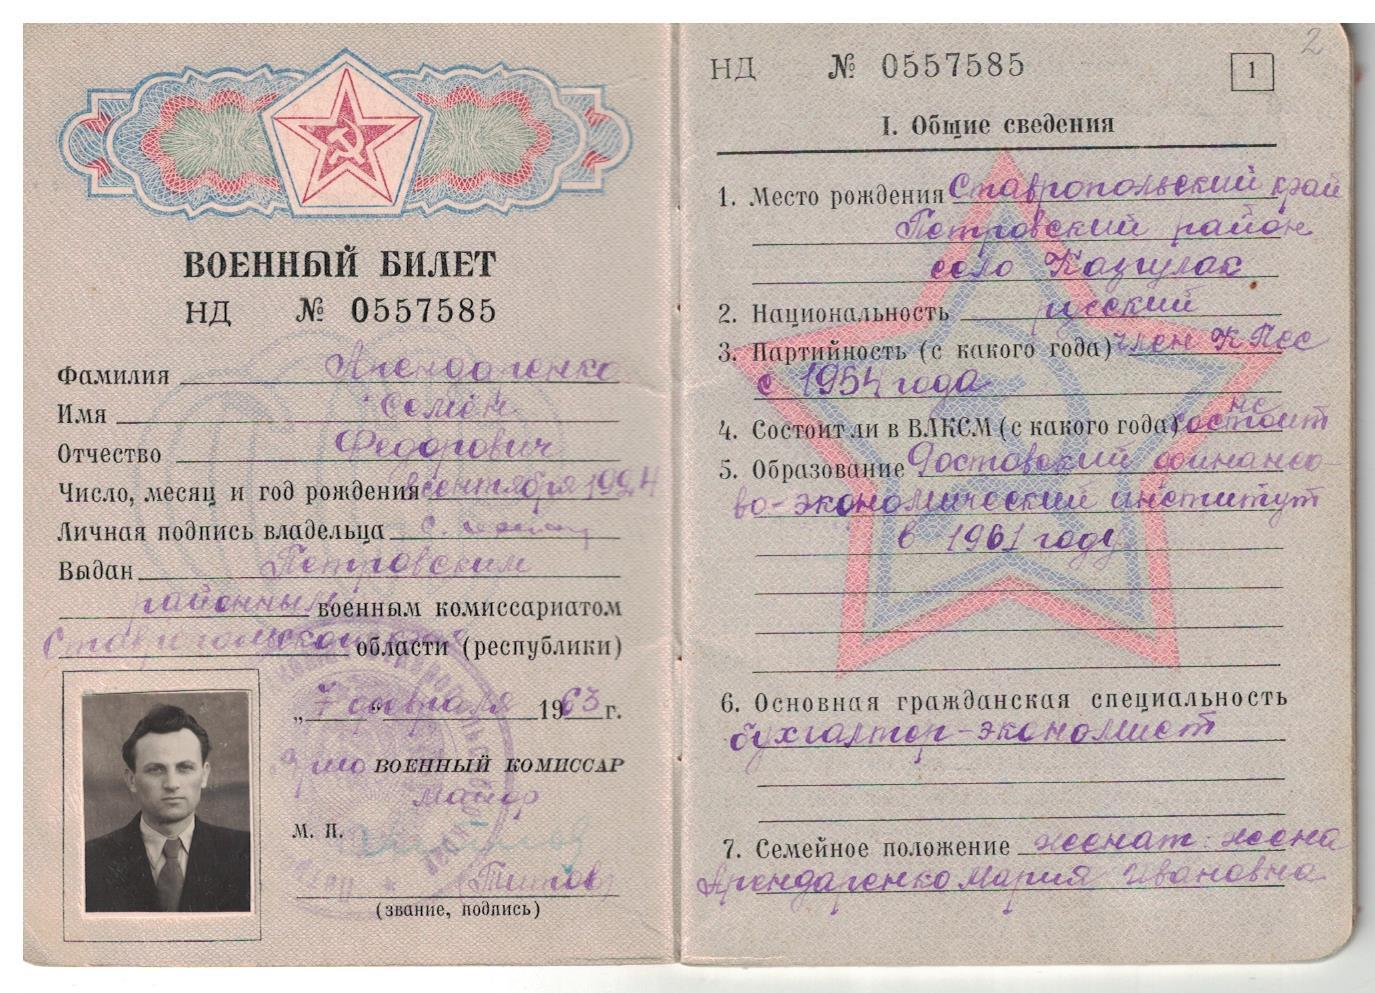 ВОЕННЫЙ БИЛЕТ
НД № 0557585
Фамилия Арендаренко
Имя Семён
Отчество Федорович
Число, месяц и год рождения сентября 1924
Личная подпись владельца
Выдан Петровским
районным военным комиссариатом
Ставропольского края области (республики)
„7“ февраля 1963 г.
ВОЕННЫЙ КОМИССАР
майор
М. П.
Титов
(звание, подпись)
2
НД № 0557585
1
I. Общие сведения
1. Место рождения Ставропольский край
Петровский район
село Казгулак
2. Национальность русский
3. Партийность (с какого года) член КПСС
с 1954 года
4. Состоит ли в ВЛКСМ (с какого года) не состоит
5. Образование Ростовский финансо
во-экономический институт
в 1961 году
6. Основная гражданская специальность
бухгалтер-экономист
7. Семейное положение женат: жена
Арендаренко Мария Ивановна